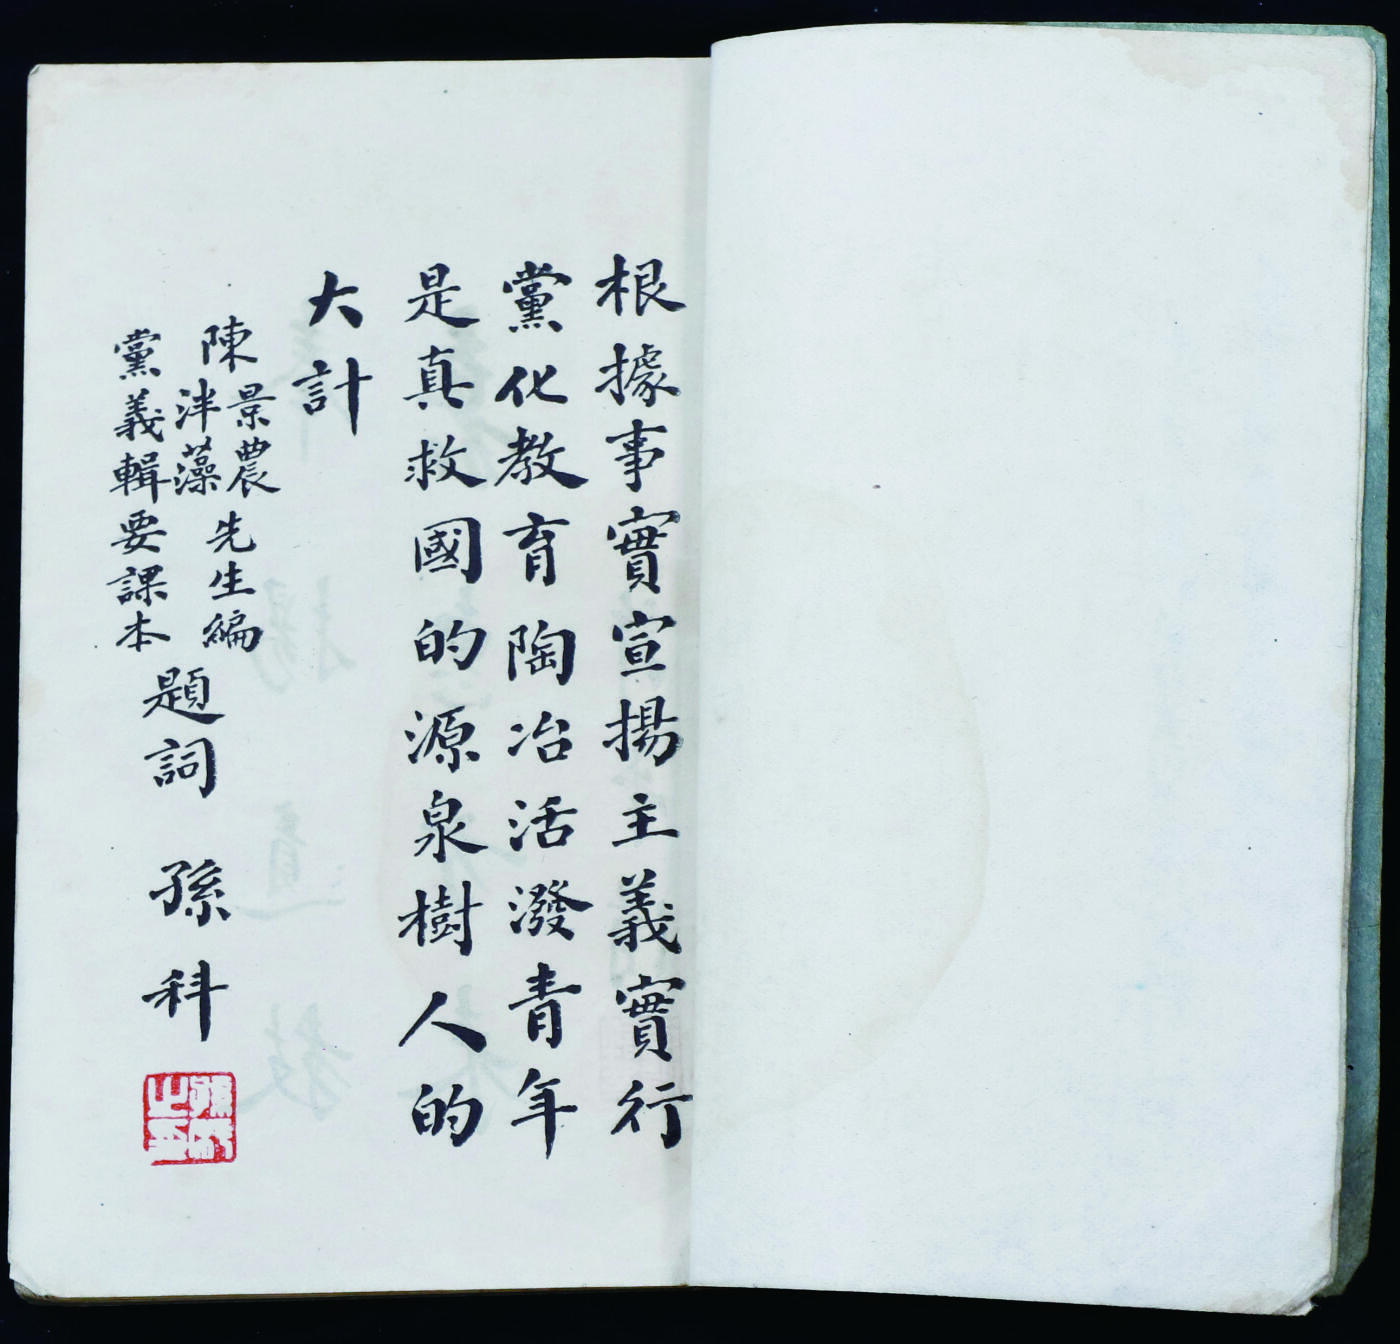 根據事實宣揚主義實行
黨化教育陶冶活潑青年
是真救國的源泉樹人的
大計
陳景農先生編
泮藻
黨義輯要課本
題詞 孫科
孫科之印